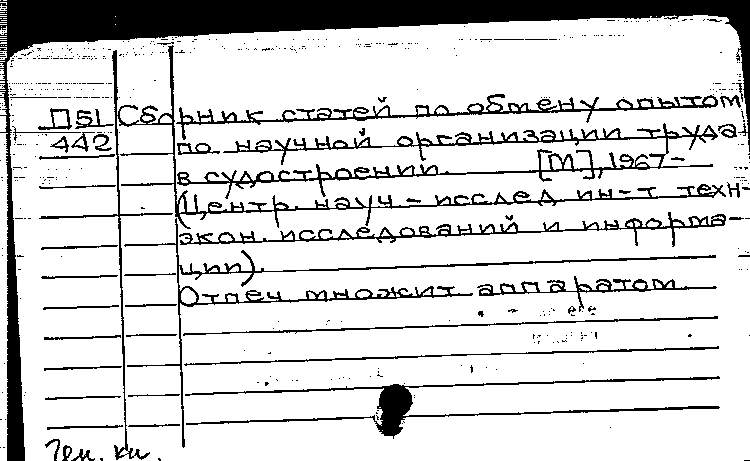 П51 Сборник статей по обмену опытом
442 по научной организации труда
в судостроении. [М], 1967-
(Центр. науч-исслед ин-т техн-
экон. исследований и информа-
ции).
Отпеч множит аппаратом